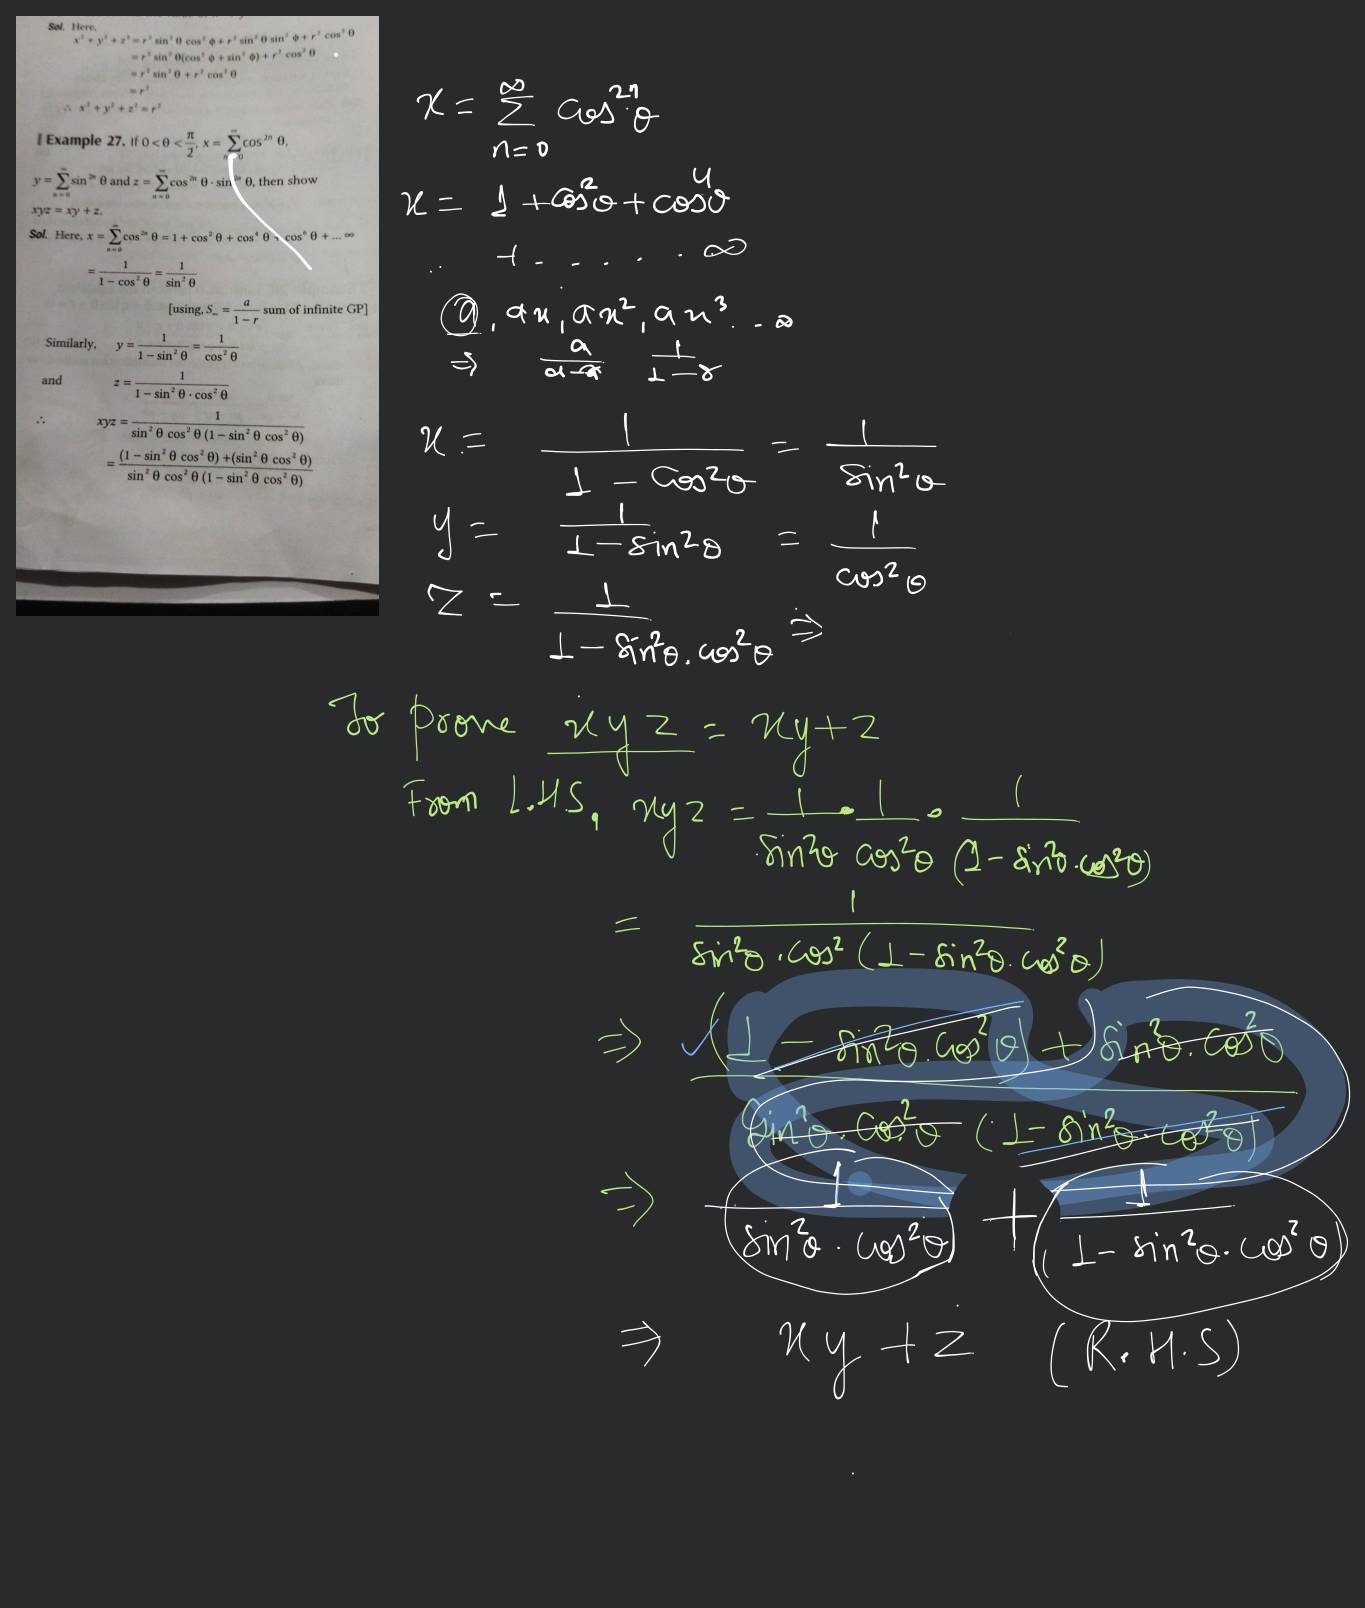 Sol. Here,
x² + y² + z² = r² sin² θ cos² φ + r² sin² θ sin² φ + r² cos² θ
= r² sin² θ(cos² φ + sin² φ) + r² cos² θ
= r² sin² θ + r² cos² θ
= r²
∴ x² + y² + z² = r²
Example 27. If 0 < θ < π/2, x = ∑ cos²ⁿ θ,
y = ∑ sin²ⁿ θ and z = ∑ cos²ⁿ θ · sin²ⁿ θ, then show
xyz = xy + z.
Sol. Here, x = ∑ cos²ⁿ θ = 1 + cos² θ + cos⁴ θ + cos⁶ θ + ... ∞
= 1/(1 − cos² θ) = 1/(sin² θ)
[using, S∞ = a/(1 − r) sum of infinite GP]
Similarly, y = 1/(1 − sin² θ) = 1/(cos² θ)
and z = 1/(1 − sin² θ · cos² θ)
∴ xyz = 1/(sin² θ cos² θ (1 − sin² θ cos² θ))
= ((1 − sin² θ cos² θ) + (sin² θ cos² θ))/(sin² θ cos² θ (1 − sin² θ cos² θ))
x = ∞ ∑ n=0 cos²ⁿθ
x = 1 + cos²θ + cos⁴θ
+ . . . . . ∞
a, ax, ax², ax³ . . - ∞
⇒ 1/(1−r)
x = 1/(1 − cos²θ) = 1/(sin²θ)
y = 1/(1 − sin²θ) = 1/(cos²θ)
z = 1/(1 − sin²θ.cos²θ) ⇒
To prove xyz = xy+z
From L.H.S, xyz = 1/sin²θ • 1/cos²θ • 1/(1 − sin²θ.cos²θ)
= 1/(sin²θ.cos²(1 − sin²θ.cos²θ))
⇒ ((1 − sin²θ.cos²θ) + sin²θ.cos²θ)/(sin²θ.cos²θ (1 − sin²θ.cos²θ))
⇒ 1/(sin²θ.cos²θ) + 1/(1 − sin²θ.cos²θ)
⇒ xy + z (R.H.S)